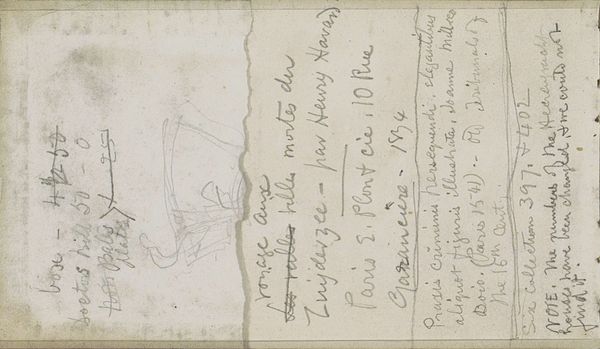 box - 4
Doctors bill 50 - 0
voyage aux
Les villes mortes du
Zuyderzee - par Henry Havard
Paris E. Plon & cie. 10 Rue
Garancière - 1874
Praxis Criminis persequendi, elegantibus
aliquot figuris illustrata, Joanne Millaeo
Boio. (Paris 1541). - Old tribunals of
the 16th Cent.
Six Collection 397. & 402
NOTE. The numbers of the Heerengracht
houses have been changed & we could not
find it.